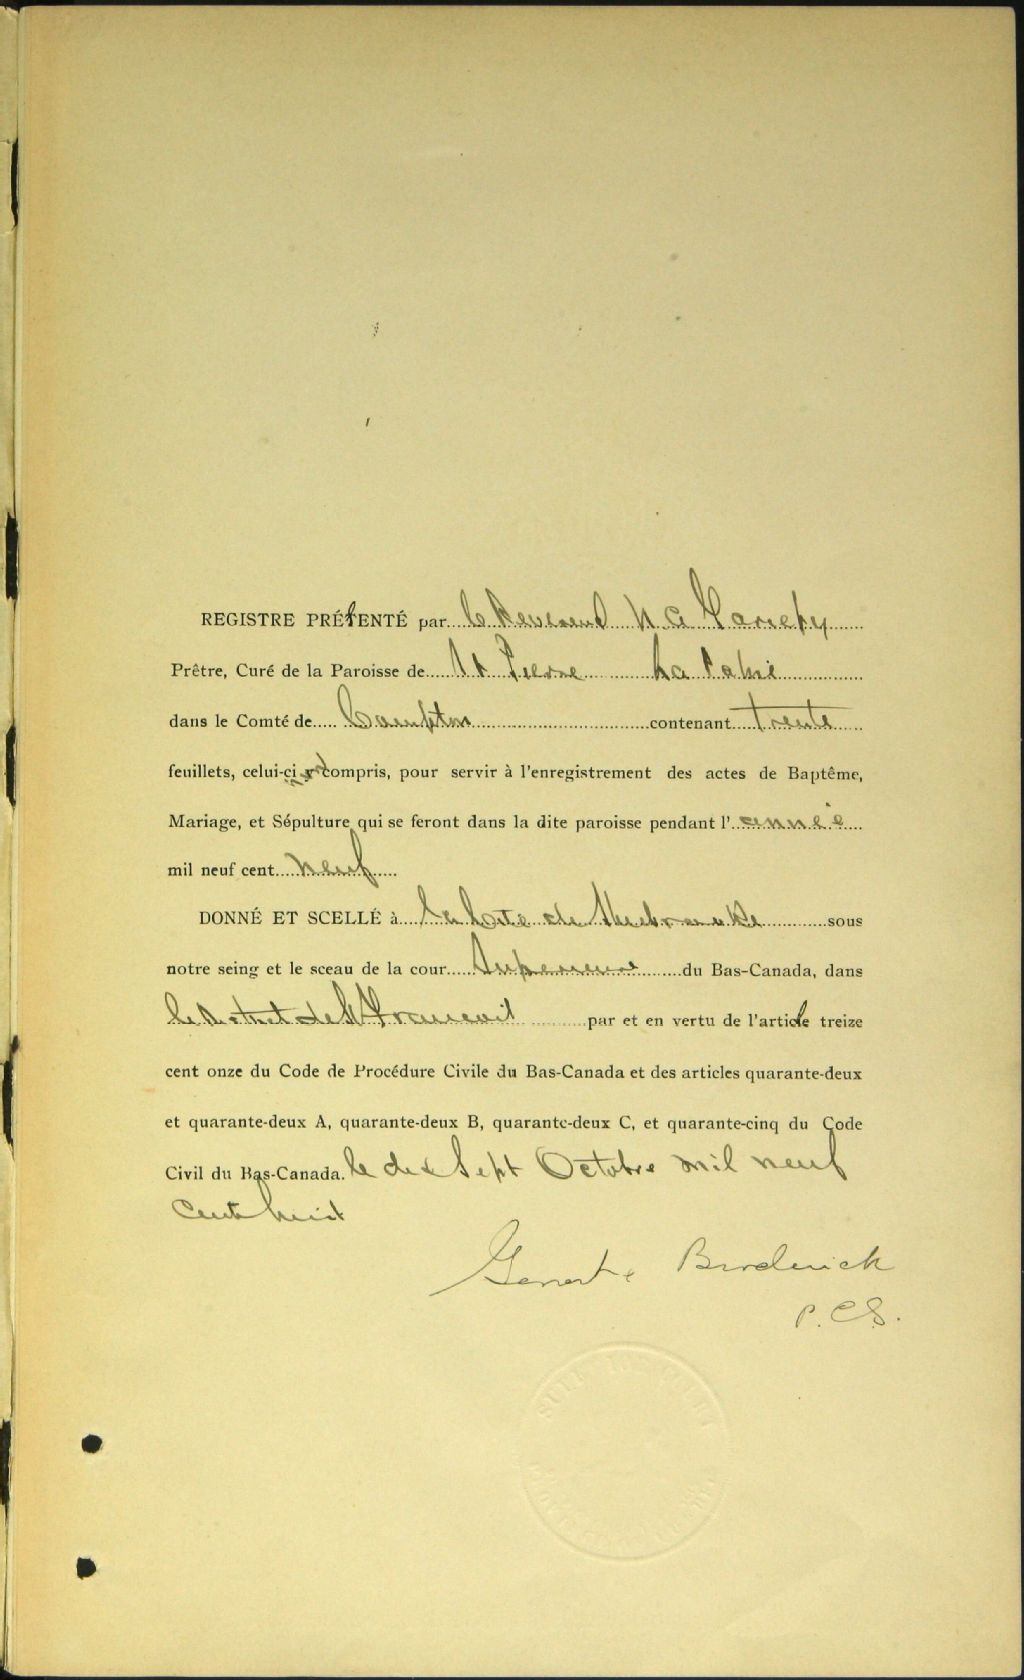 REGISTRE PRÉSENTÉ par le Reverend N A Gariepy
Prêtre, Curé de la Paroisse de St Pierre La Patrie
dans le Comté de Compton contenant trente
feuillets, celui-ci y compris, pour servir à l'enregistrement des actes de Baptême,
Mariage, et Sépulture qui se feront dans la dite paroisse pendant l'année
mil neuf cent neuf
DONNÉ ET SCELLÉ à la Cité de Sherbrooke sous
notre seing et le sceau de la cour Superieure du Bas-Canada, dans
le District de St Francois par et en vertu de l'article treize
cent onze du Code de Procédure Civile du Bas-Canada et des articles quarante-deux
et quarante-deux A, quarante-deux B, quarante-deux C, et quarante-cinq du Code
Civil du Bas-Canada. le dix Sept Octobre mil neuf
Cent huit
Broderick
P. C. S.